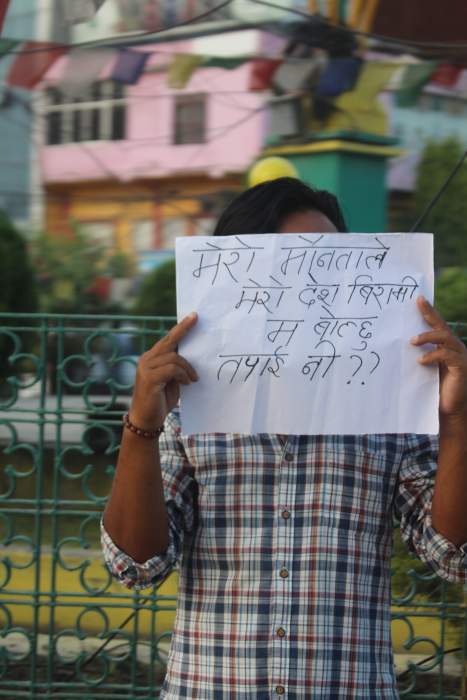 मेरो मौनताले
मेरो देश बिरामी
म बोल्छु
तपाई नी ??